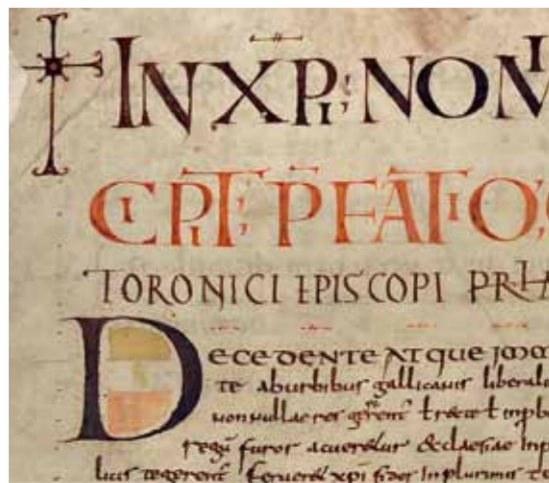 IN XPI: NOMI
CIPIT; PFATIO
TORONICI EPISCOPI
DECEDENTE ATQUE IMM
te aburbibus gallicanis liberali
nonnullae res gerent ł recte ł inprob
regū furor acueretur &claesiae inp
licis tegerent feruere xpi fides inplurimis te